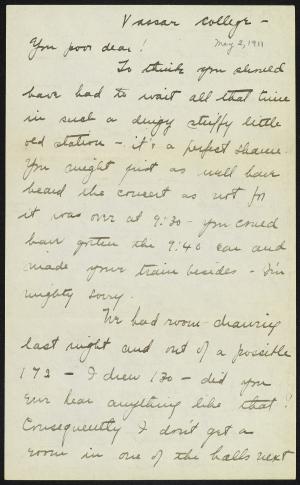 Vassar College -
May 2, 1911
You poor dear!
To think you should
have had to wait all that time
in such a dingy stuffy little
old station - it's a perfect shame.
You might just as well have
heard the concert as not for
it was over at 9:30 - you could
have gotten the 9:40 car and
made your train besides - I'm
mighty sorry.
We had room-drawing
last night and out of a possible
173 - I drew 130 - did you
ever hear anything like that!
Consequently I don't get a
room in one of the halls next